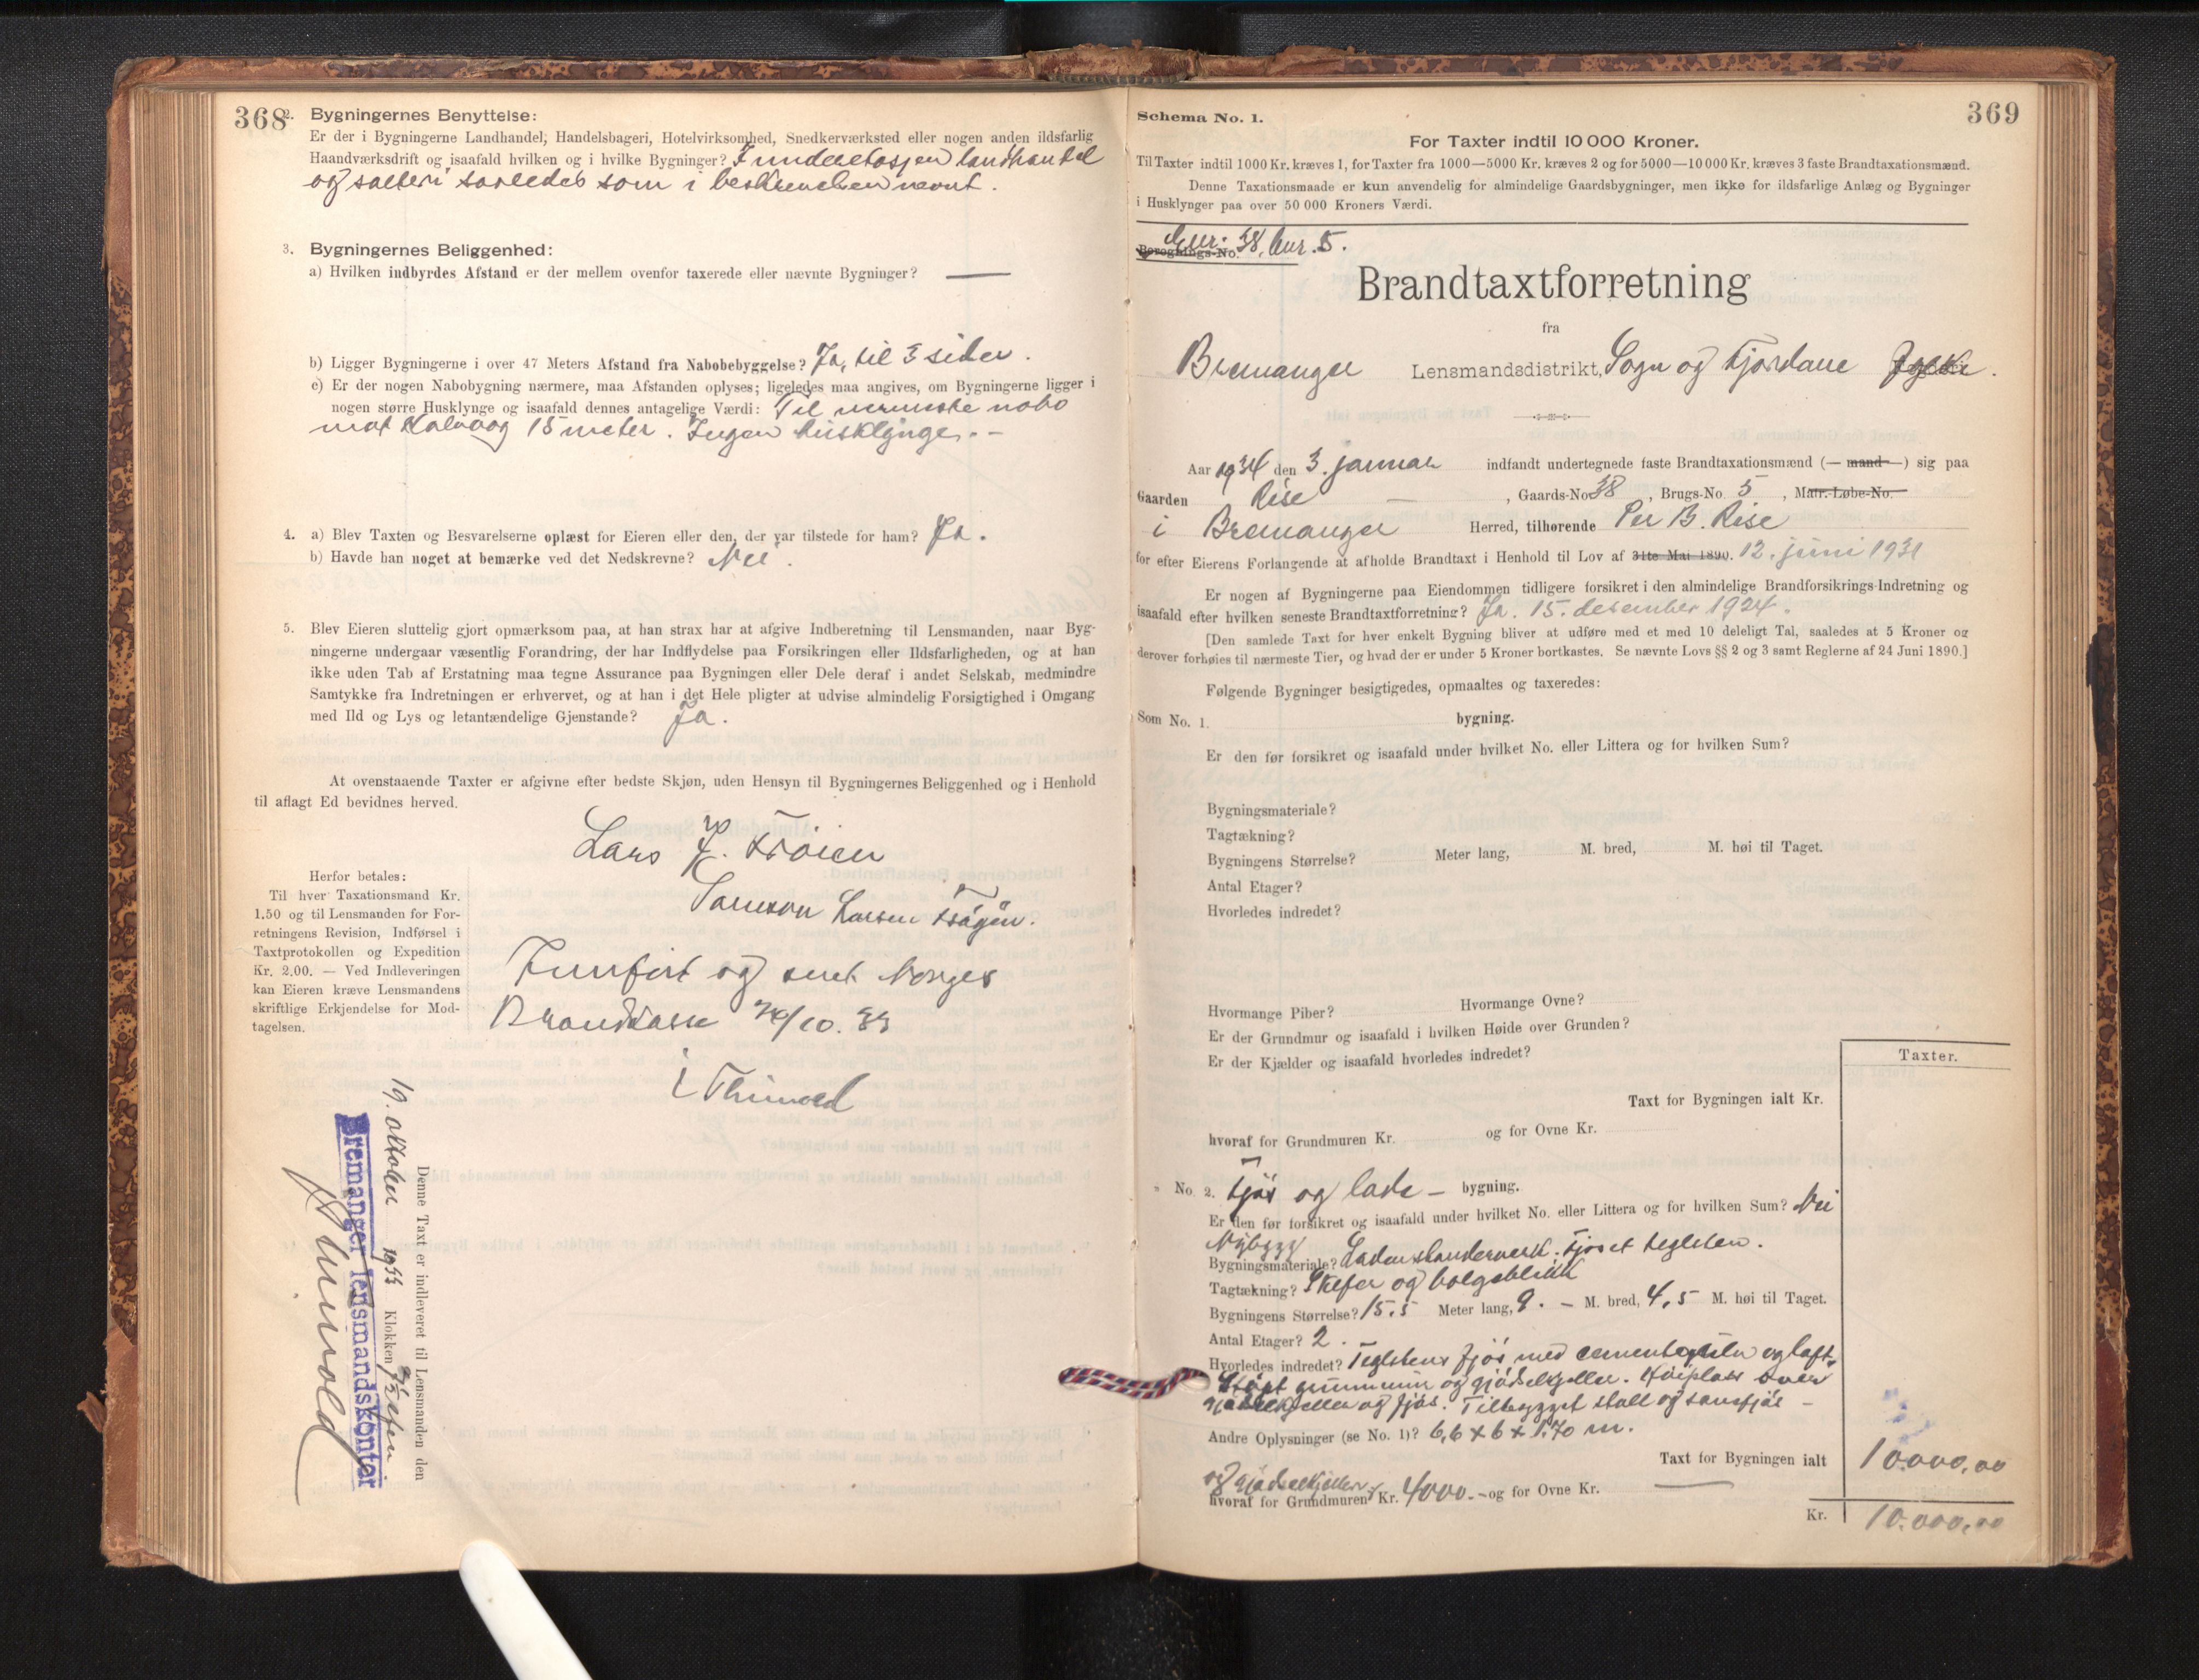 368
2. Bygningernes Benyttelse:
Er der i Bygningerne Landhandel, Handelsbageri, Hotelvirksomhed, Snedkerværksted eller nogen anden ildsfarlig
Haandværksdrift og isaafald hvilken og i hvilke Bygninger? I underetasjen landhandel
og salteri saaledes som i beskrivelsen nevnt.
3. Bygningernes Beliggenhed:
a) Hvilken indbyrdes Afstand er der mellem ovenfor taxerede eller nævnte Bygninger? —
b) Ligger Bygningerne i over 47 Meters Afstand fra Nabobebyggelse? Ja, til 3 sider.
c) Er der nogen Nabobygning nærmere, maa Afstanden oplyses; ligeledes maa angives, om Bygningerne ligger i
nogen større Husklynge og isaafald dennes antagelige Værdi: Til nermeste nabo
mot Kalvaag 15 meter. Ingen husklynge. -
4. a) Blev Taxten og Besvarelserne oplæst for Eieren eller den, der var tilstede for ham? Ja.
b) Havde han noget at bemærke ved det Nedskrevne? Nei.
5. Blev Eieren sluttelig gjort opmærksom paa, at han strax har at afgive Indberetning til Lensmanden, naar Byg-
ningerne undergaar væsentlig Forandring, der har Indflydelse paa Forsikringen eller Ildsfarligheden, og at han
ikke uden Tab af Erstatning maa tegne Assurance paa Bygningen eller Dele deraf i andet Selskab, medmindre
Samtykke fra Indretningen er erhvervet, og at han i det Hele pligter at udvise almindelig Forsigtighed i Omgang
med Ild og Lys og letantændelige Gjenstande? Ja.
At ovenstaaende Taxter er afgivne efter bedste Skjøn, uden Hensyn til Bygningernes Beliggenhed og i Henhold
til aflagt Ed bevidnes herved.
Lars
Larsen
Herfor betales:
Til hver Taxationsmand Kr.
1.50 og til Lensmanden for For-
retningens Revision, Indførsel i
Taxtprotokollen og Expedition
Kr. 2.00. — Ved Indleveringen
kan Eieren kræve Lensmandens
skriftlige Erkjendelse for Mod-
tagelsen.
Innført og sent Norges
Brandkasse 24/10. 33
Denne Taxt er indleveret til Lensmanden den
19. oktober 1933 Klokken
Bremanger lensmandskontor
369
Schema No. 1.
For Taxter indtil 10 000 Kroner.
Til Taxter indtil 1000 Kr. kræves 1, for Taxter fra 1000—5000 Kr. kræves 2 og for 5000—10 000 Kr. kræves 3 faste Brandtaxationsmænd.
Denne Taxationsmaade er kun anvendelig for almindelige Gaardsbygninger, men ikke for ildsfarlige Anlæg og Bygninger
i Husklynger paa over 50 000 Kroners Værdi.
Gnr. 38, bnr. 5.
Beregnings-No.
Brandtaxtforretning
fra
Bremanger Lensmandsdistrikt, Sogn og Fjordane Fogderi.
Aar 1934 den 3. januar indfandt undertegnede faste Brandtaxationsmænd (— mand —) sig paa
Gaarden Rise — , Gaards-No 38, Brugs-No 5, Matr.-Løbe-No.
i Bremanger Herred, tilhørende Per B. Rise
for efter Eierens Forlangende at afholde Brandtaxt i Henhold til Lov af 31te Mai 1890. 12. juni 1931
Er nogen af Bygningerne paa Eiendommen tidligere forsikret i den almindelige Brandforsikrings-Indretning og
isaafald efter hvilken seneste Brandtaxtforretning? Ja. 15. desember 1924.
[Den samlede Taxt for hver enkelt Bygning bliver at udføre med et med 10 deleligt Tal, saaledes at 5 Kroner og
derover forhøies til nærmeste Tier, og hvad der er under 5 Kroner bortkastes. Se nævnte Lovs §§ 2 og 3 samt Reglerne af 24 Juni 1890.]
Følgende Bygninger besigtigedes, opmaaltes og taxeredes:
Som No. 1. bygning.
Er den før forsikret og isaafald under hvilket No. eller Littera og for hvilken Sum?
Bygningsmateriale?
Tagtækning?
Bygningens Størrelse? Meter lang, M. bred, M. høi til Taget.
Antal Etager?
Hvorledes indredet?
Hvormange Piber? Hvormange Ovne?
Er der Grundmur og isaafald i hvilken Høide over Grunden?
Er der Kjælder og isaafald hvorledes indredet?
Taxter.
Taxt for Bygningen ialt Kr.
hvoraf for Grundmuren Kr. og for Ovne Kr.
" No. 2. Fjøs og lade — bygning.
Er den før forsikret og isaafald under hvilket No. eller Littera og for hvilken Sum? Nei
Nybygg
Bygningsmateriale? Laden standerverk. Fjøset teglsten.
Tagtækning? Skifer og bølgeblikk
Bygningens Størrelse? 15.5 Meter lang, 9. — M. bred, 4,5 M. høi til Taget.
Antal Etager? 2.
Hvorledes indredet? Teglstens fjøs med cementgulv og loft.
Støpt grunnmur og gjødselkjeller. Høiplass over
gjødselkjeller og fjøs. Tilbygget stall og sauefjøs —
Andre Oplysninger (se No. 1)? 6,6 x 6 x 1.70 m.
Taxt for Bygningen ialt 10.000,00
og gjødselkjeller
hvoraf for Grundmuren Kr. 4000.- og for Ovne Kr. —
Kr. 10.000,00